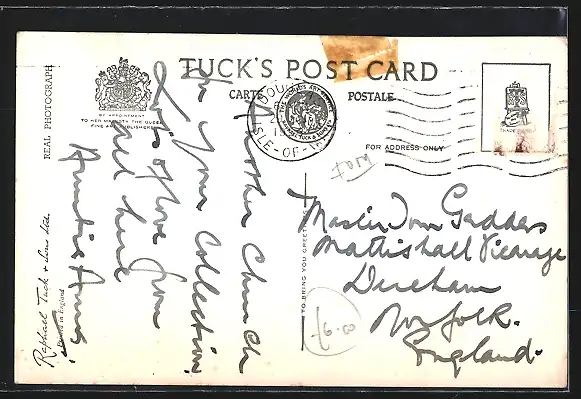 TUCK'S POST CARD
CARTE POSTALE
BY APPOINTMENT
TO HER MAJESTY THE QUEEN
FINE ART PUBLISHERS
FOR ADDRESS ONLY
TRADE MARK
DOUGLAS
ISLE-OF-MAN
REAL PHOTOGRAPH
Raphael Tuck & Sons Ltd.
Printed in England
TO BRING YOU GREETINGS
Another Church
for your Collection.
Lots of love from
all here
Auntie
Master Tom Gaddas
Mattishall Vicarage
Dereham
Norfolk.
England.